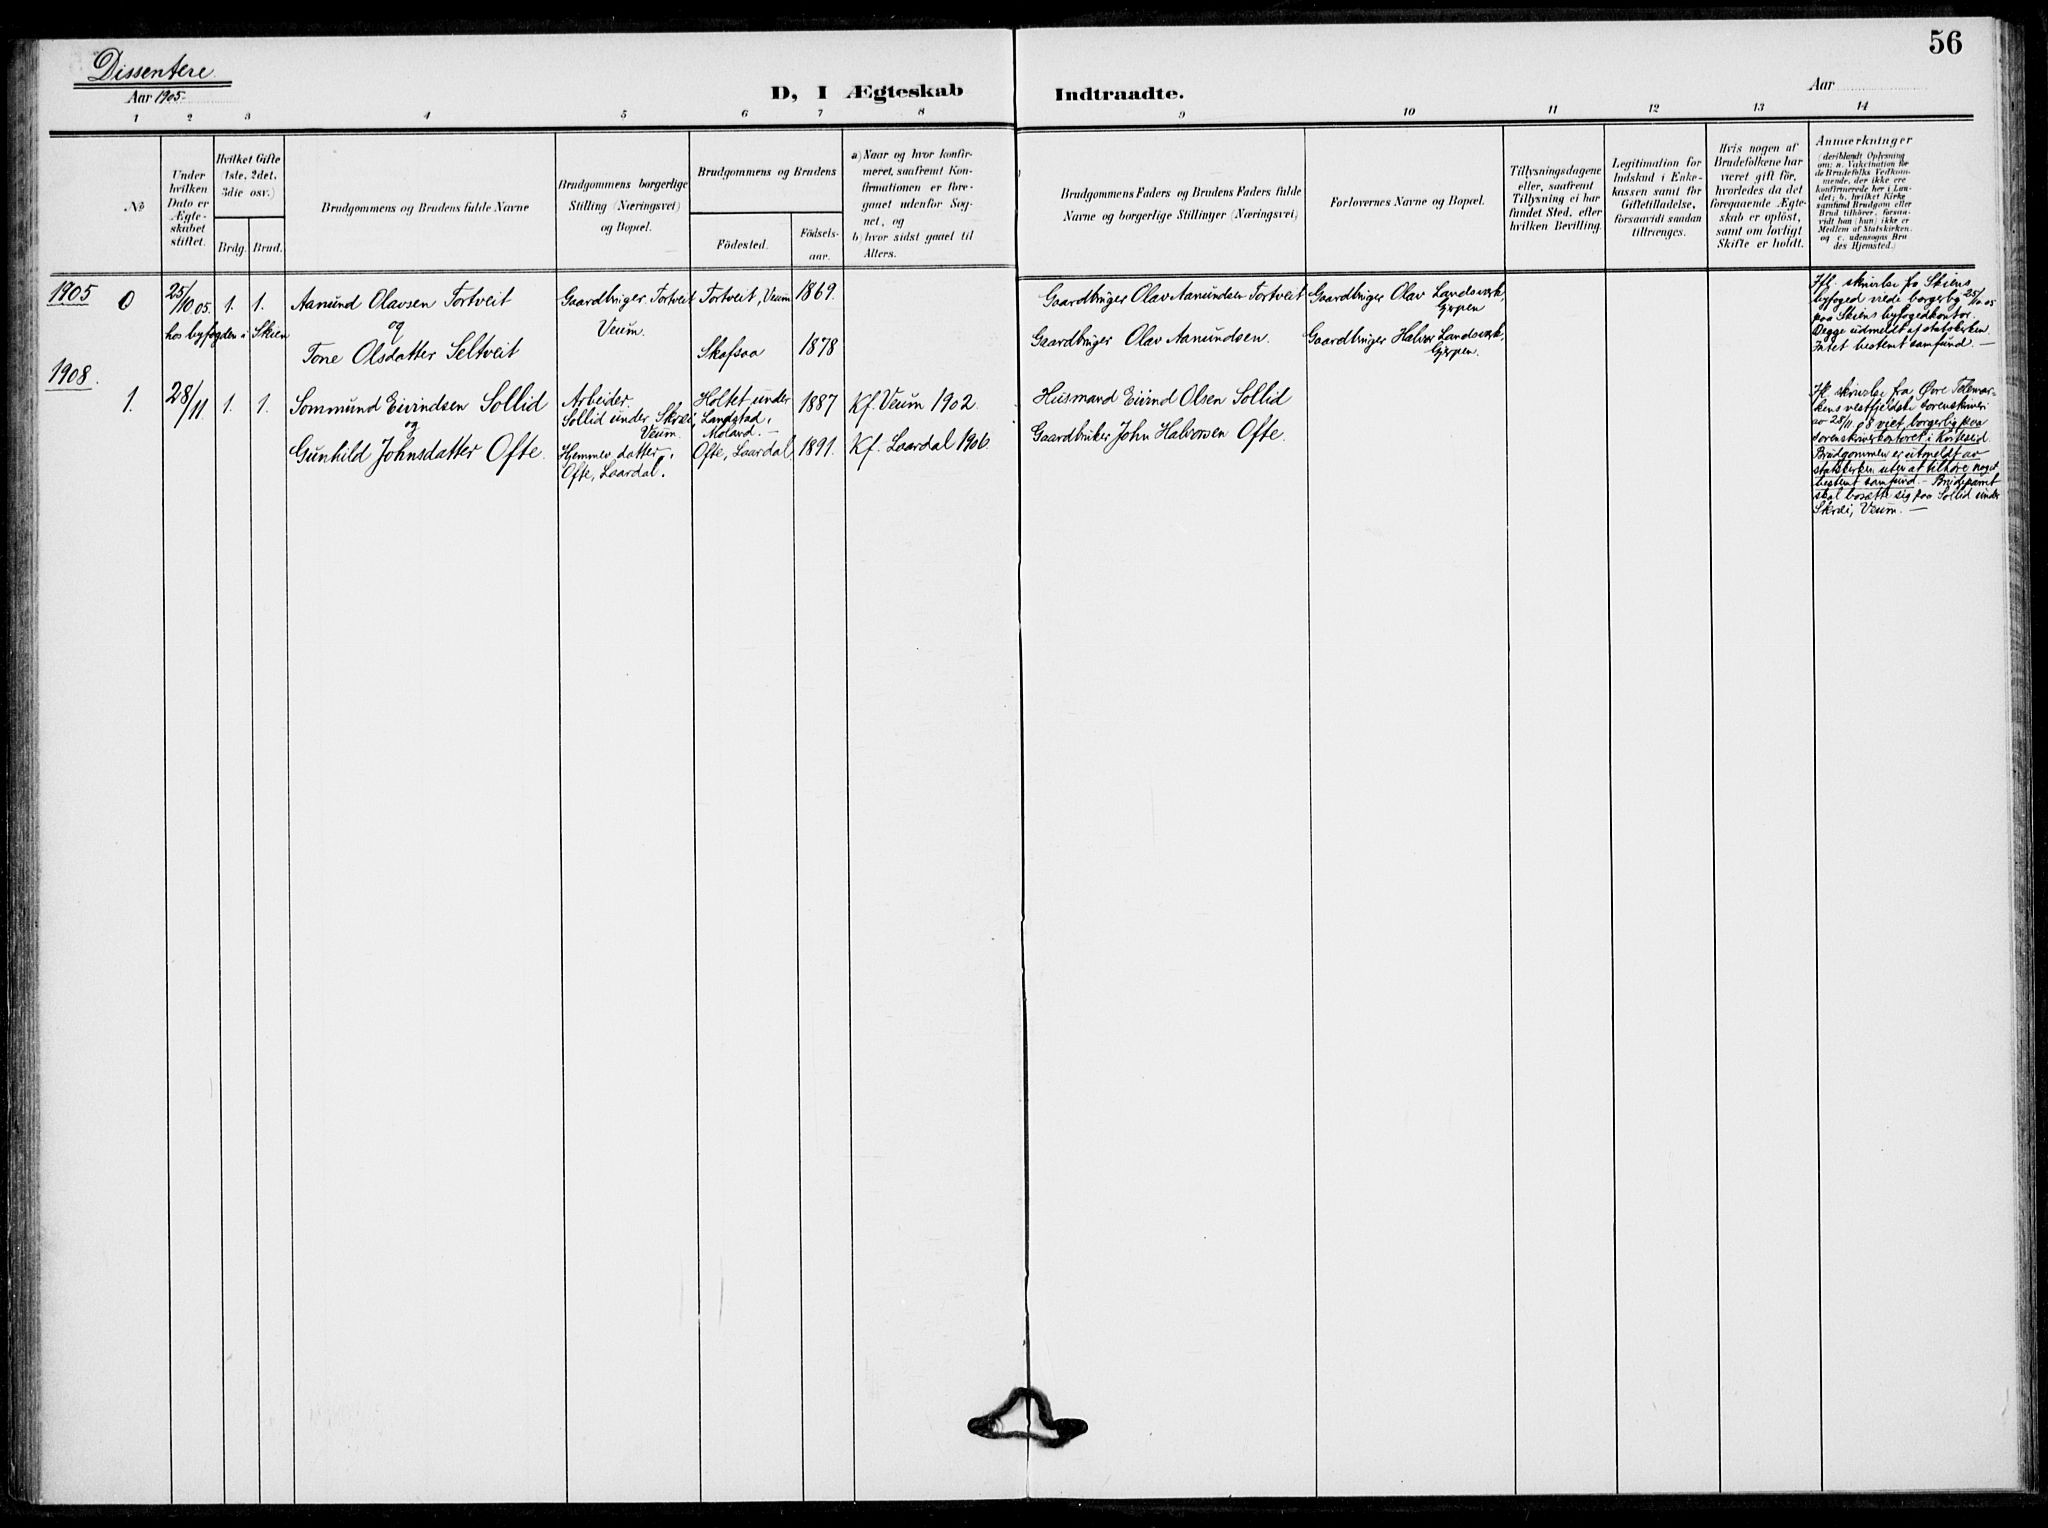 56
Dissentere
Aar 1905.
D, I Ægteskab Indtraadte.
Aar
1 2 3 4 5 6 7 8 9 10 11 12 13 14
№
Under
hvilken
Dato er
Ægte-
skabet
stiftet.
Hvilket Gifte
(1ste, 2det,
3die osv.)
Brdg. Brud.
Brudgommens og Brudens fulde Navne
Brudgommens borgerlige
Stilling (Næringsvei)
og Bopæl.
Brudgommens og Brudens
Födested.
Födsels-
aar.
a) Naar og hvor konfir-
meret, saafremt Kon-
firmationen er fore-
gaaet udenfor Sog-
net, og
b) hvor sidst gaaet til
Alters.
Brudgommens Faders og Brudens Faders fulde
Navne og borgerlige Stillinger (Næringsvei)
Forlovernes Navne og Bopæl.
Tillysningsdagene
eller, saafremt
Tillysning ei har
fundet Sted, efter
hvilken Bevilling.
Legitimation for
Indskud i Enke-
kassen samt for
Giftetilladelse,
forsaavidt saadan
tiltrænges.
Hvis nogen af
Brudefolkene har
været gift för,
hvorledes da det
foregaaende Ægte-
skab er oplöst,
samt om lovligt
Skifte er holdt.
Anmærkninger
(deriblandt Oplysning
om: a. Vakcination for
de Brudefolks Vedkom-
mende, der ikke ere
konfirmerede her i Lan-
det; b. hvilket Kirke-
samfund Brudgom eller
Brud tilhörer, forsaa-
vidt han (hun) ikke er
Medlem af Statskirken,
og c. udensogns Bru-
des Hjemsted.)
1905
0 25/10 05. 1. 1. Aanund Olavsen Tortveit Gaardbruger Tortveit Tortveit, Veum 1869. Gaardbruger Olav Aanundsen Tortveit Gaardbruger Olav Landsverk,
Veum. Gjerpen
hos byfogden i Skien og
Tone Olsdatter Seltveit Skafsaa 1878 Gaardbruger Olav Aanundsen. Gaardbruger Halvor Landsverk,
Gjerpen.
Ifl. skrivelse fra Skiens
byfoged viede borgerlig 25/10 05
paa Skiens byfogedkontor.
Begge udmeldt af statskirken.
Intet bestemt samfund. —
1908.
1. 28/11. 1. 1. Sommund Eivindsen Sollid Arbeider Holtet under 1887 Kf. Veum 1902. Husmand Eivind Olsen Sollid
og Sollid under Skrei, Landstad,
Veum. Moland. —
Gunhild Johnsdatter Ofte. Hjemmev. datter, Ofte, Laardal 1891. Kf. Laardal 1906. Gaardbruker John Halvorsen Ofte.
Ofte, Laardal.
Ifl. skrivelse fra Øvre Telemar-
kens vestfjeldske sorenskriveri
av 28/11 08 viet borgerlig paa
sorenskriverkontoret i Kviteseid.
Brudgommen er utmeldt av
statskirken uten at tilhøre noget
bestemt samfund. — Brudeparret
skal bosætte sig paa Sollid under
Skrei, Veum. —